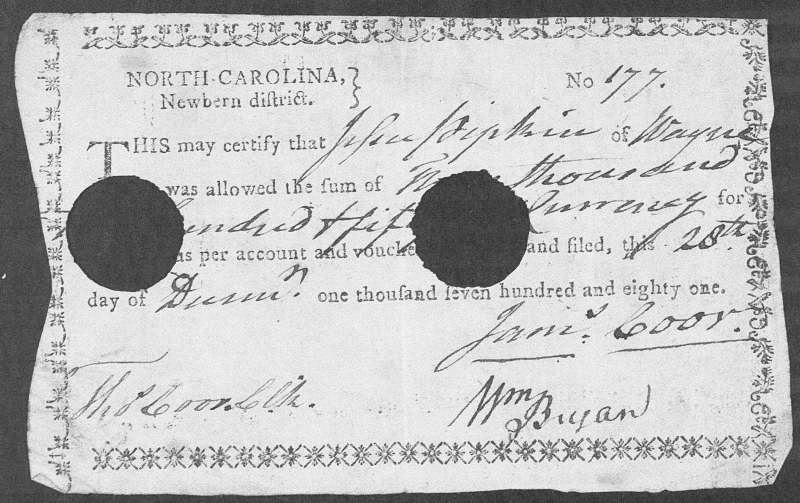 NORTH-CAROLINA, }
Newbern district.
No 177.
THIS may certify that Pipkin of Wayne
was allowed the sum of thousand
hundred & fifty Currency for
as per account and vouche and filed, this 28th
day of one thousand seven hundred and eighty one.
Jams Coor.
Thos Coor. Clk.
Wm Bryan